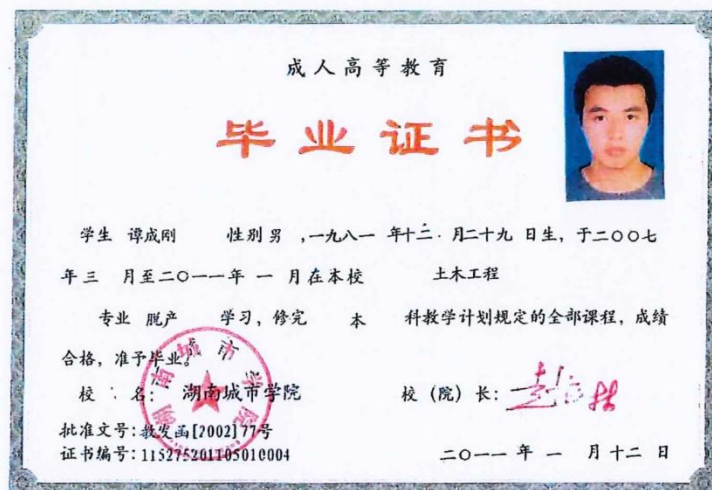 成人高等教育
毕业证书
学生 谭成刚 性别 男 ,一九八一 年十二 月二十九 日生，于二〇〇七
年三 月至二〇一一年 一 月在本校 土木工程
专业 脱产 学习，修完 本 科教学计划规定的全部课程，成绩
合格，准予毕业。
校 名： 湖南城市学院 校（院）长：
批准文号：教发函[2002]77号
证书编号：115275201105010004 二〇一一 年 一 月十二 日
湖南城市学院